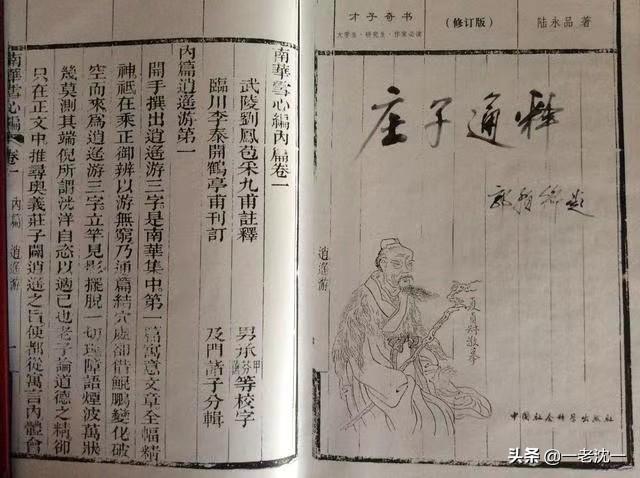 南華雪心編內篇卷一
武陵劉鳳苞采九甫註釋
男承
甲
芬
等校字
臨川李泰開鶴亭甫刊訂
及門諸子分輯
內篇逍遙游第一
開手撰出逍遙游三字是南華集中第一篇寓意文章全幅精
神祗在乘正御辨以游無窮乃通篇結穴處卻借鯤鵬變化破
空而來為逍遙游三字立竿見影擺脫一切理障語煙波萬狀
幾莫測其端倪所謂洸洋自恣以適己也老子論道德之精卻
只在正文中推尋奧義莊子闡逍遙之旨便都從寓言內體會
南華雪心編
卷一
內篇
逍遙游
一
才子奇书
大学生·研究生·作家必读
(修订版)
陆永品 著
庄子通释
逍遙游
中国社会科学出版社
头条 @一老沈一